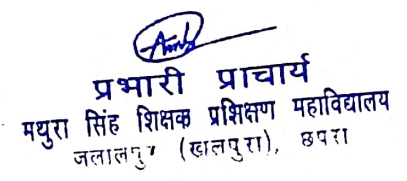 प्रभारी प्राचार्य
मथुरा सिंह शिक्षक प्रशिक्षण महाविद्यालय
जलालपुर (खलपुरा), छपरा